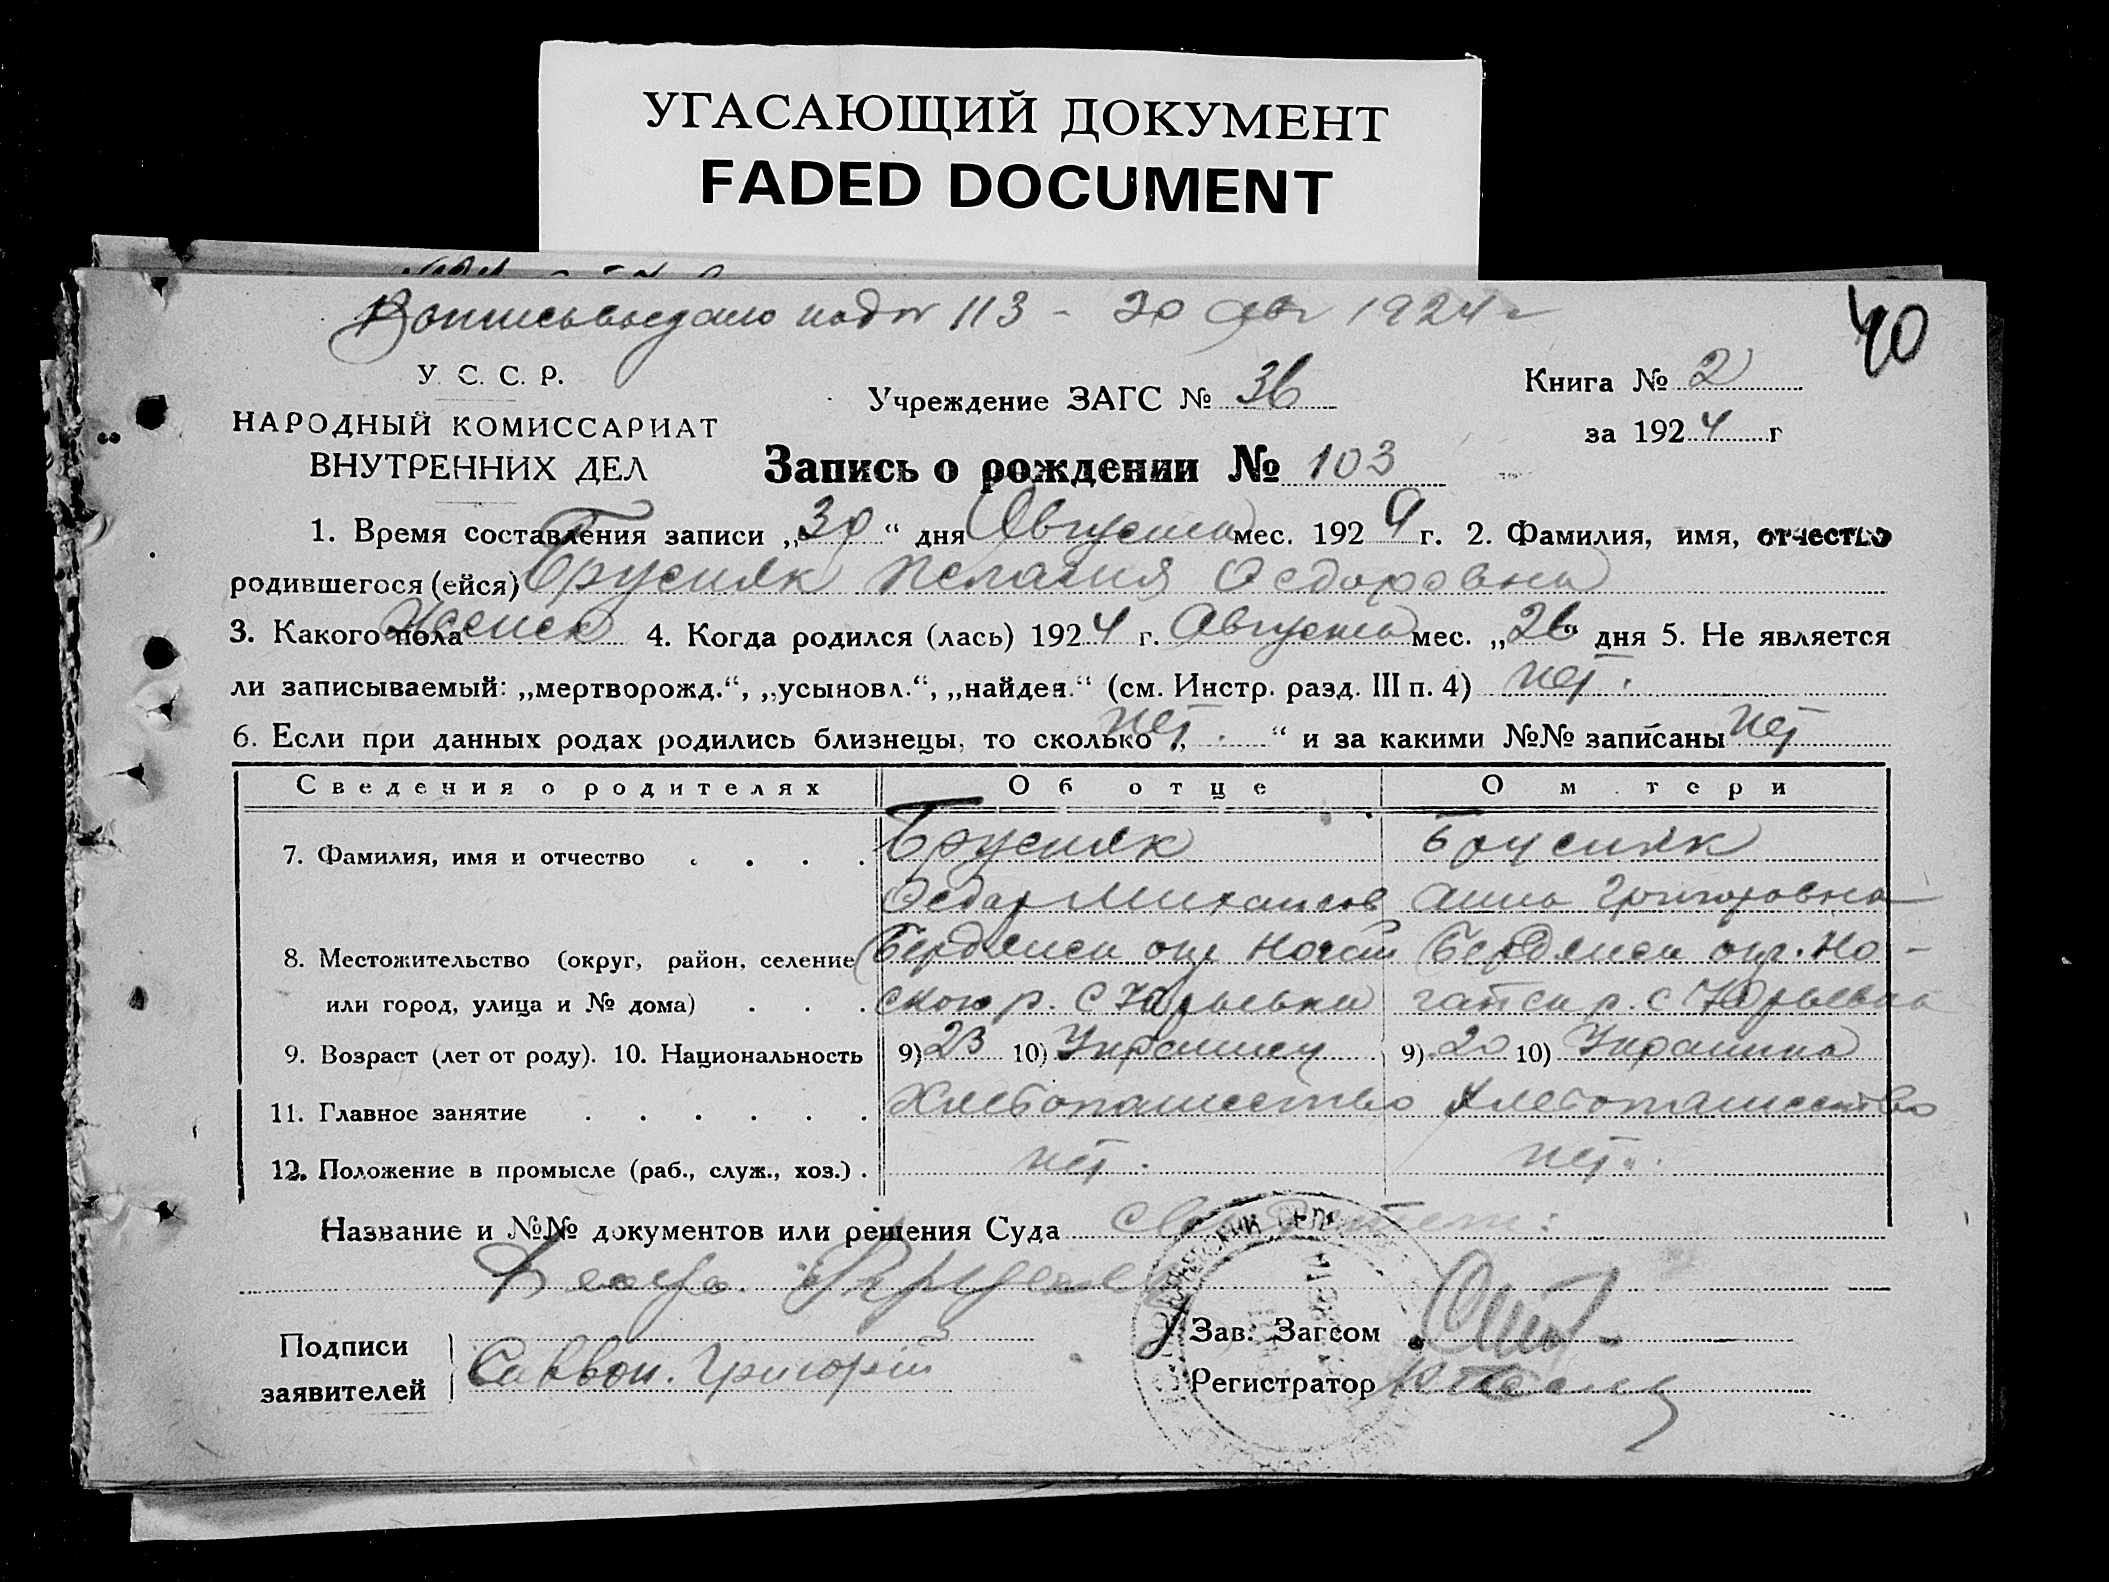 УГАСАЮЩИЙ ДОКУМЕНТ
FADED DOCUMENT
под № 113 - 30 Авг 1924 г
40
У. С. С. Р.
НАРОДНЫЙ КОМИССАРИАТ
ВНУТРЕННИХ ДЕЛ
Учреждение ЗАГС № 36
Книга № 2
за 1924 г
Запись о рождении № 103
1. Время составления записи „30“ дня Августа мес. 1924 г. 2. Фамилия, имя, отчество
родившегося (ейся) Брусняк Пелагия Федоровна
3. Какого пола Женск 4. Когда родился (лась) 1924 г. Августа мес. „26 дня 5. Не является
ли записываемый: „мертворожд.“, „усыновл.“, „найден.“ (см. Инстр. разд. III п. 4) нет.
6. Если при данных родах родились близнецы, то сколько „нет.“ и за какими №№ записаны нет
Сведения о родителях Об отце О м тери
7. Фамилия, имя и отчество . . . . Брусняк Брусняк
Федор Михайлов Анна Григоровна
8. Местожительство (округ, район, селение Бердянск окр Ногай Бердянск окр. Но-
или город, улица и № дома) . . . ского р. с Юрьевка гайск р. с Юрьевка
9. Возраст (лет от роду). 10. Национальность 9) 23 10) Украинец 9) 20 10) Украинка
11. Главное занятие . . . . . . Хлебопашество Хлебопашество
12. Положение в промысле (раб., служ., хоз.) . нет. нет.
Название и №№ документов или решения Суда
Подписи
заявителей
Григорій
Зав. Загсом
Регистратор